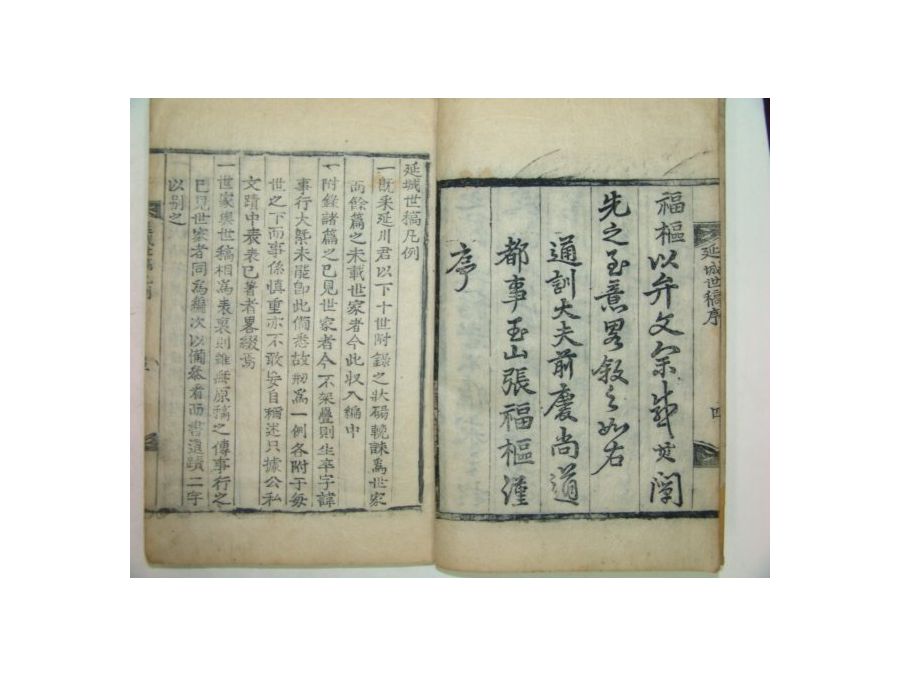 延城世稿序
四
福樞以弁文宗
先之至意畧敘之如右
通訓大夫前慶尚道
都事玉山張福樞謹
序
延城世稿凡例
一旣采延川君以下十世附錄之狀碣輓誄爲世家
而餘篇之未載世家者今此収入編中
一附錄諸篇之已見世家者今不架疊則生卒字諱
事行大槩未能卽此僃悉故剏爲一例各附于每
世之下而事係愼重亦不敢妄自稱述只據公私
文蹟中表表已著者畧綴焉
一世家與世稿相爲表裏則雖無原稿之傳事行之
已見世家者同爲編次以備叅看而書遺蹟二字
以別之